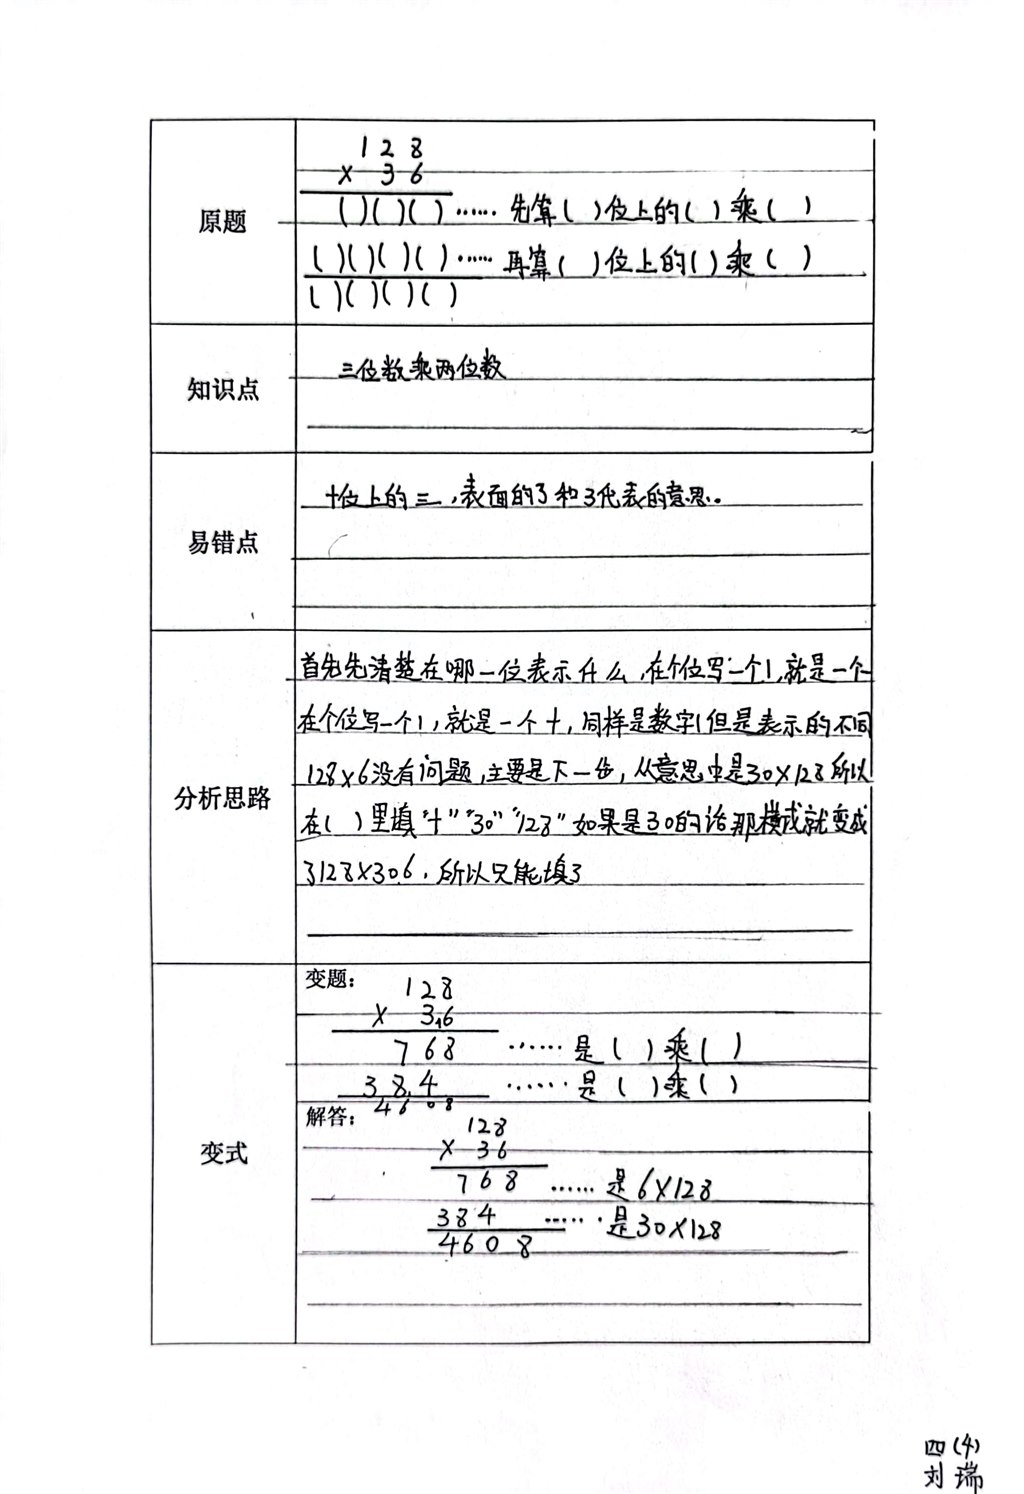 原题
128
× 36
( )( )( ) …… 先算( )位上的( )乘( )
( )( )( )( ) …… 再算( )位上的( )乘( )
( )( )( )( )
知识点
三位数乘两位数
易错点
十位上的三,表面的3和3代表的意思。
分析思路
首先先清楚在哪一位表示什么,在个位写一个1,就是一个一
在个位写一个1,就是一个十,同样是数字1但是表示的不同
128×6没有问题,主要是下一步,从意思中是30×128所以
在( )里填“十”“30”“128”如果是30的话那横式就变成
了128×306,所以只能填3
变式
变题:
128
× 36
768 …… 是( )乘( )
384 …… 是( )乘( )
4608
解答:
128
× 36
768 …… 是6×128
384 …… 是30×128
4608
四(4)
刘瑞